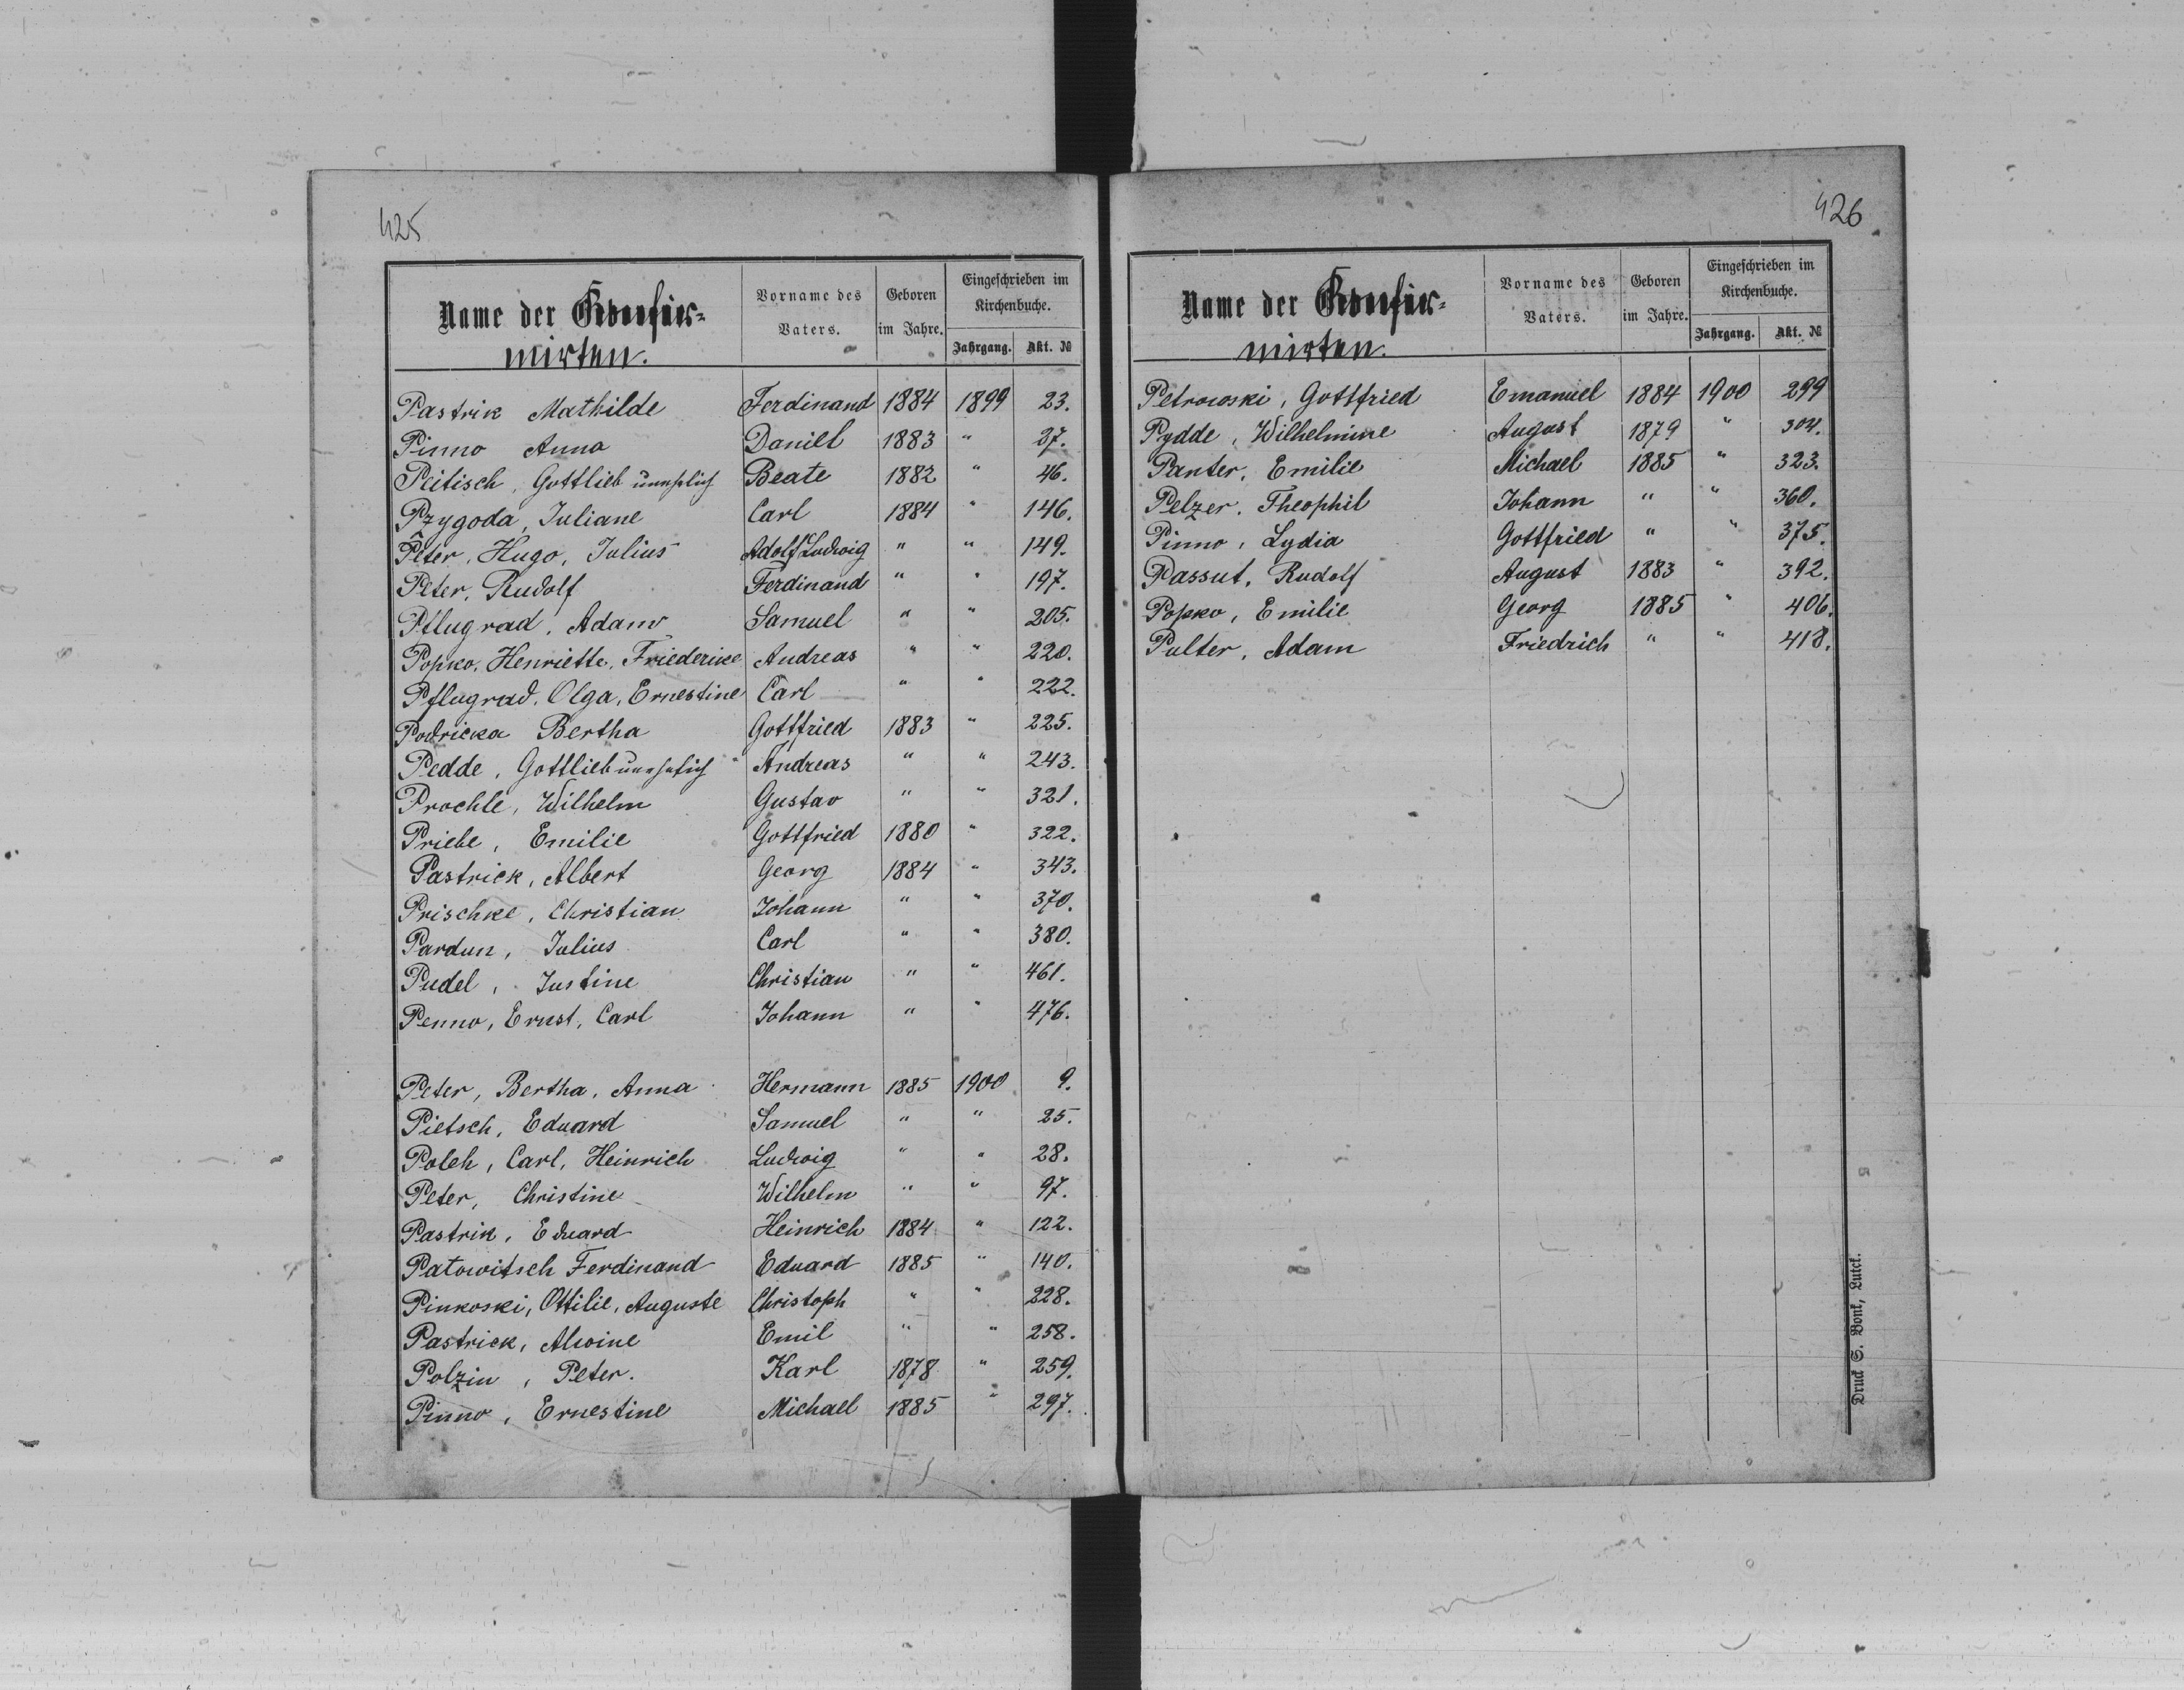 425
Name der Confir-
mirten.
Vorname des
Vaters.
Geboren
im Jahre.
Eingeschrieben im
Kirchenbuche.
Jahrgang. Akt. №
Pastrik Mathilde Ferdinand 1884 1899 23.
Pinno Anna Daniel 1883 " 27.
Peitisch, Gottlieb unehelich Beate 1882 " 46.
Pzygoda, Juliane Carl 1884 " 146.
Peter, Hugo, Julius Adolf Ludwig " " 149.
Peter, Rudolf Ferdinand " " 197.
Pflugrad, Adam Samuel " " 205.
Popko, Henriette, Friederike Andreas " " 220.
Pflugrad, Olga, Ernestine Carl " " 222.
Podricka Bertha Gottfried 1883 " 225.
Pedde, Gottlieb unehelich Andreas " " 243.
Prochle, Wilhelm Gustav " " 321.
Priebe, Emilie Gottfried 1880 " 322.
Pastrick, Albert Georg 1884 " 343.
Prischke, Christian Johann " " 370.
Pardun, Julius Carl " " 380.
Pudel, Justine Christian " " 461.
Penno, Ernst, Carl Johann " " 476.
Peter, Bertha, Anna Hermann 1885 1900 9.
Pietsch, Eduard Samuel " " 25.
Poleh, Carl, Heinrich Ludwig " " 28.
Peter, Christine Wilhelm " " 97.
Pastrik, Eduard Heinrich 1884 " 122.
Patowitsch Ferdinand Eduard 1885 " 140.
Pinkoski, Ottilie, Auguste Christoph " " 228.
Pastrick, Alwine Emil " " 258.
Polzin, Peter. Karl 1878 " 259.
Pinno, Ernestine Michael 1885 " 297.
426
Name der Confir-
mirten.
Vorname des
Vaters.
Geboren
im Jahre.
Eingeschrieben im
Kirchenbuche.
Jahrgang. Akt. №
Petrowski, Gottfried Emanuel 1884 1900 299
Pydde, Wilhelmine August 1879 " 304.
Panter, Emilie Michael 1885 " 323.
Pelzer, Theophil Johann " " 360.
Pinno, Lydia Gottfried " " 375.
Passut, Rudolf August 1883 " 392.
Popko, Emilie Georg 1885 " 406.
Pulter, Adam Friedrich " " 418.
Druck S. Bonk, Lutck.